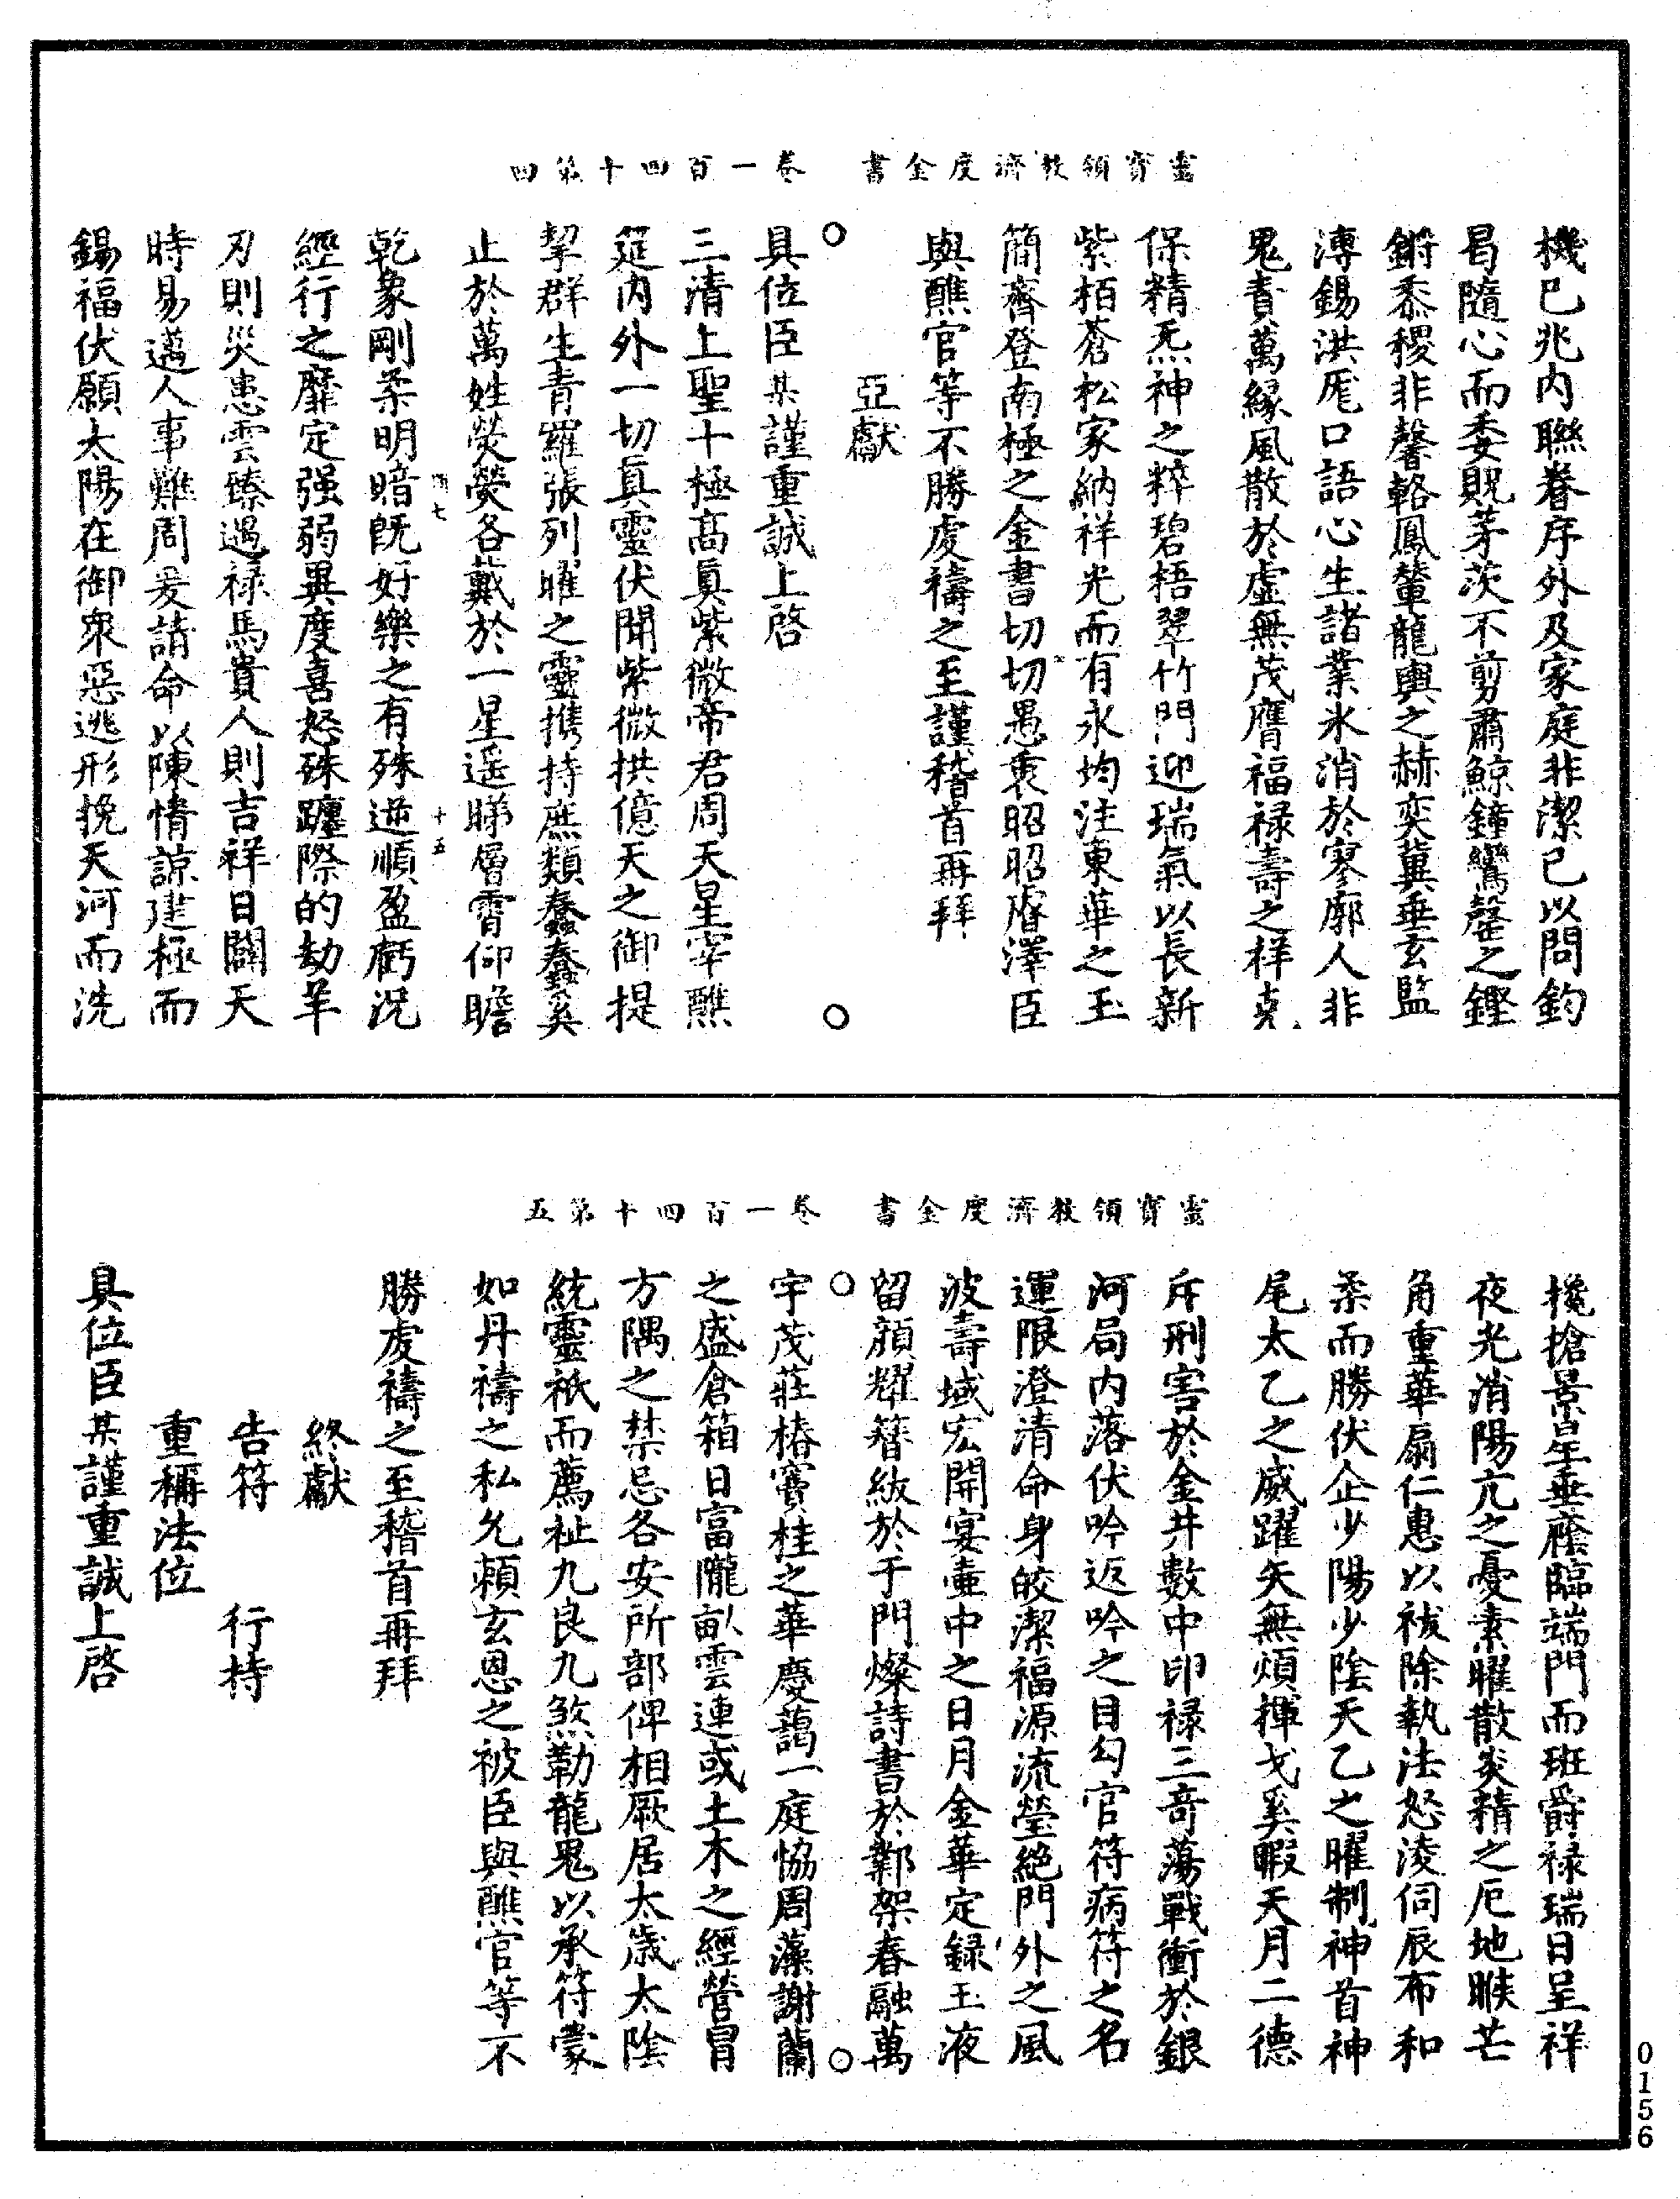 靈寶領教濟度金書　卷一百四十第四
機已兆内聯眷序外及家庭非潔已以問鈞
曷隨心而委貺茅茨不剪肅鯨鐘鸞罄之鏗
鏘黍稷非馨輅鳳輦龍輿之赫奕冀垂玄監
溥錫洪厖口語心生諸業氷消於寥廓人非
鬼責萬緣風散於虛無茂膺福祿壽之祥克
保精炁神之粹碧梧翠竹門迎瑞氣以長新
紫栢蒼松家納祥光而有永均注東華之玉
簡齋登南極之金書切切愚衷昭昭睿澤臣
與醮官等不勝虔禱之至謹稽首再拜
亞獻
具位臣某謹重誠上啓
三清上聖十極高眞紫微帝君周天星宰醮
筵内外一切真靈伏聞紫微拱億天之御提
挈群生青羅張列曜之靈携持庶類蠢蠢奚
止於萬姓熒熒各戴於一星遥睇層霄仰瞻
乾象剛柔明暗旣好樂之有殊逆順盈虧況
經行之靡定强弱異度喜怒殊躔際的劫羊
刃則災患雲臻遇祿馬貴人則吉祥日闢天
時易邁人事難周爰請命以陳情諒建極而
錫福伏願太陽在御衆惡逃形挽天河而洗
靈寶領教濟度金書　卷一百四十第五
欃搶景星垂廕臨端門而班爵祿瑞日呈祥
夜光消陽亢之憂素曜散炎精之厄地睺芒
角重華扇仁惠以祓除執法怒淩伺辰布和
柔而勝伏企少陽少陰天乙之曜制神首神
尾太乙之威躍矢無煩揮戈奚暇天月二德
斥刑害於金井數中印祿三奇蕩戰衝於銀
河局内落伏吟返吟之目勾官符病符之名
運限澄清命身皎潔福源流瑩絕門外之風
波壽域宏開宴壷中之日月金華定録玉液
留顔耀簪紱於于門燦詩書於鄴架春融萬
宇茂莊椿竇桂之華慶藹一庭恊周藻謝蘭
之盛倉箱日富隴畝雲連或土木之經營冒
方隅之禁忌各安所部俾相厥居太歲太陰
統靈祇而薦祉九良九煞勒龍鬼以承符蒙
如丹禱之私允頼玄恩之被臣與醮官等不
勝虔禱之至稽首再拜
終獻
告符　行持
重稱法位
具位臣某謹重誠上啓
0156